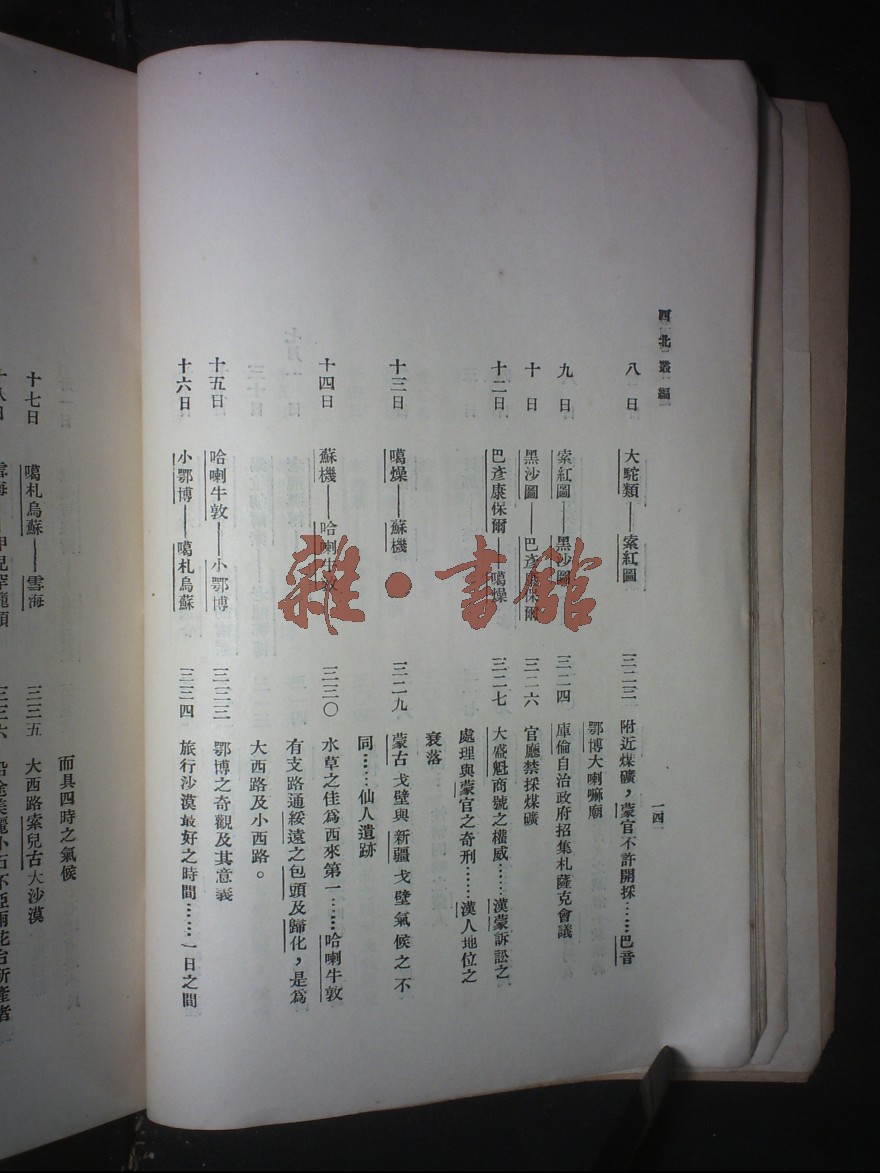 西北叢編
一四
八日　大駝類——索紅圖　三二三　附近煤礦，蒙官不許開採……巴音
鄂博大喇嘛廟
九日　索紅圖——黑沙圖　三二四　庫倫自治政府招集札薩克會議
十日　黑沙圖——巴彥康保爾　三二六　官廳禁採煤礦
十二日　巴彥康保爾——噶燥　三二七　大盛魁商號之權威……漢蒙訴訟之
處理與蒙官之奇刑……漢人地位之
衰落
十三日　噶燥——蘇機　三二九　蒙古戈壁與新疆戈壁氣候之不
同……仙人遺跡
十四日　蘇機——哈喇牛敦　三三〇　水草之佳為西來第一……哈喇牛敦
有支路通綏遠之包頭及歸化，是為
大西路及小西路。
十五日　哈喇牛敦——小鄂博　三三三　鄂博之奇觀及其意義
十六日　小鄂博——噶札烏蘇　三三四　旅行沙漠最好之時間……一日之間
而具四時之氣候
十七日　噶札烏蘇——雪海　三三五　大西路索兒古大沙漠
十八日　雪海　三三六　沿途美麗小石不亞雨花台所產者
雜·書館